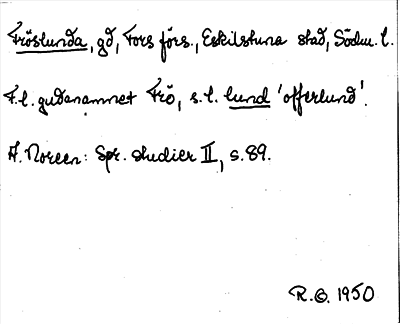 Fröslunda, gd, Fors förs., Eskilstuna stad, Södm. l.
F.l. gudanamnet Frö, s.l. lund 'offerlund'.
A. Noreen: Spr. studier II, s. 89.
R.G. 1950